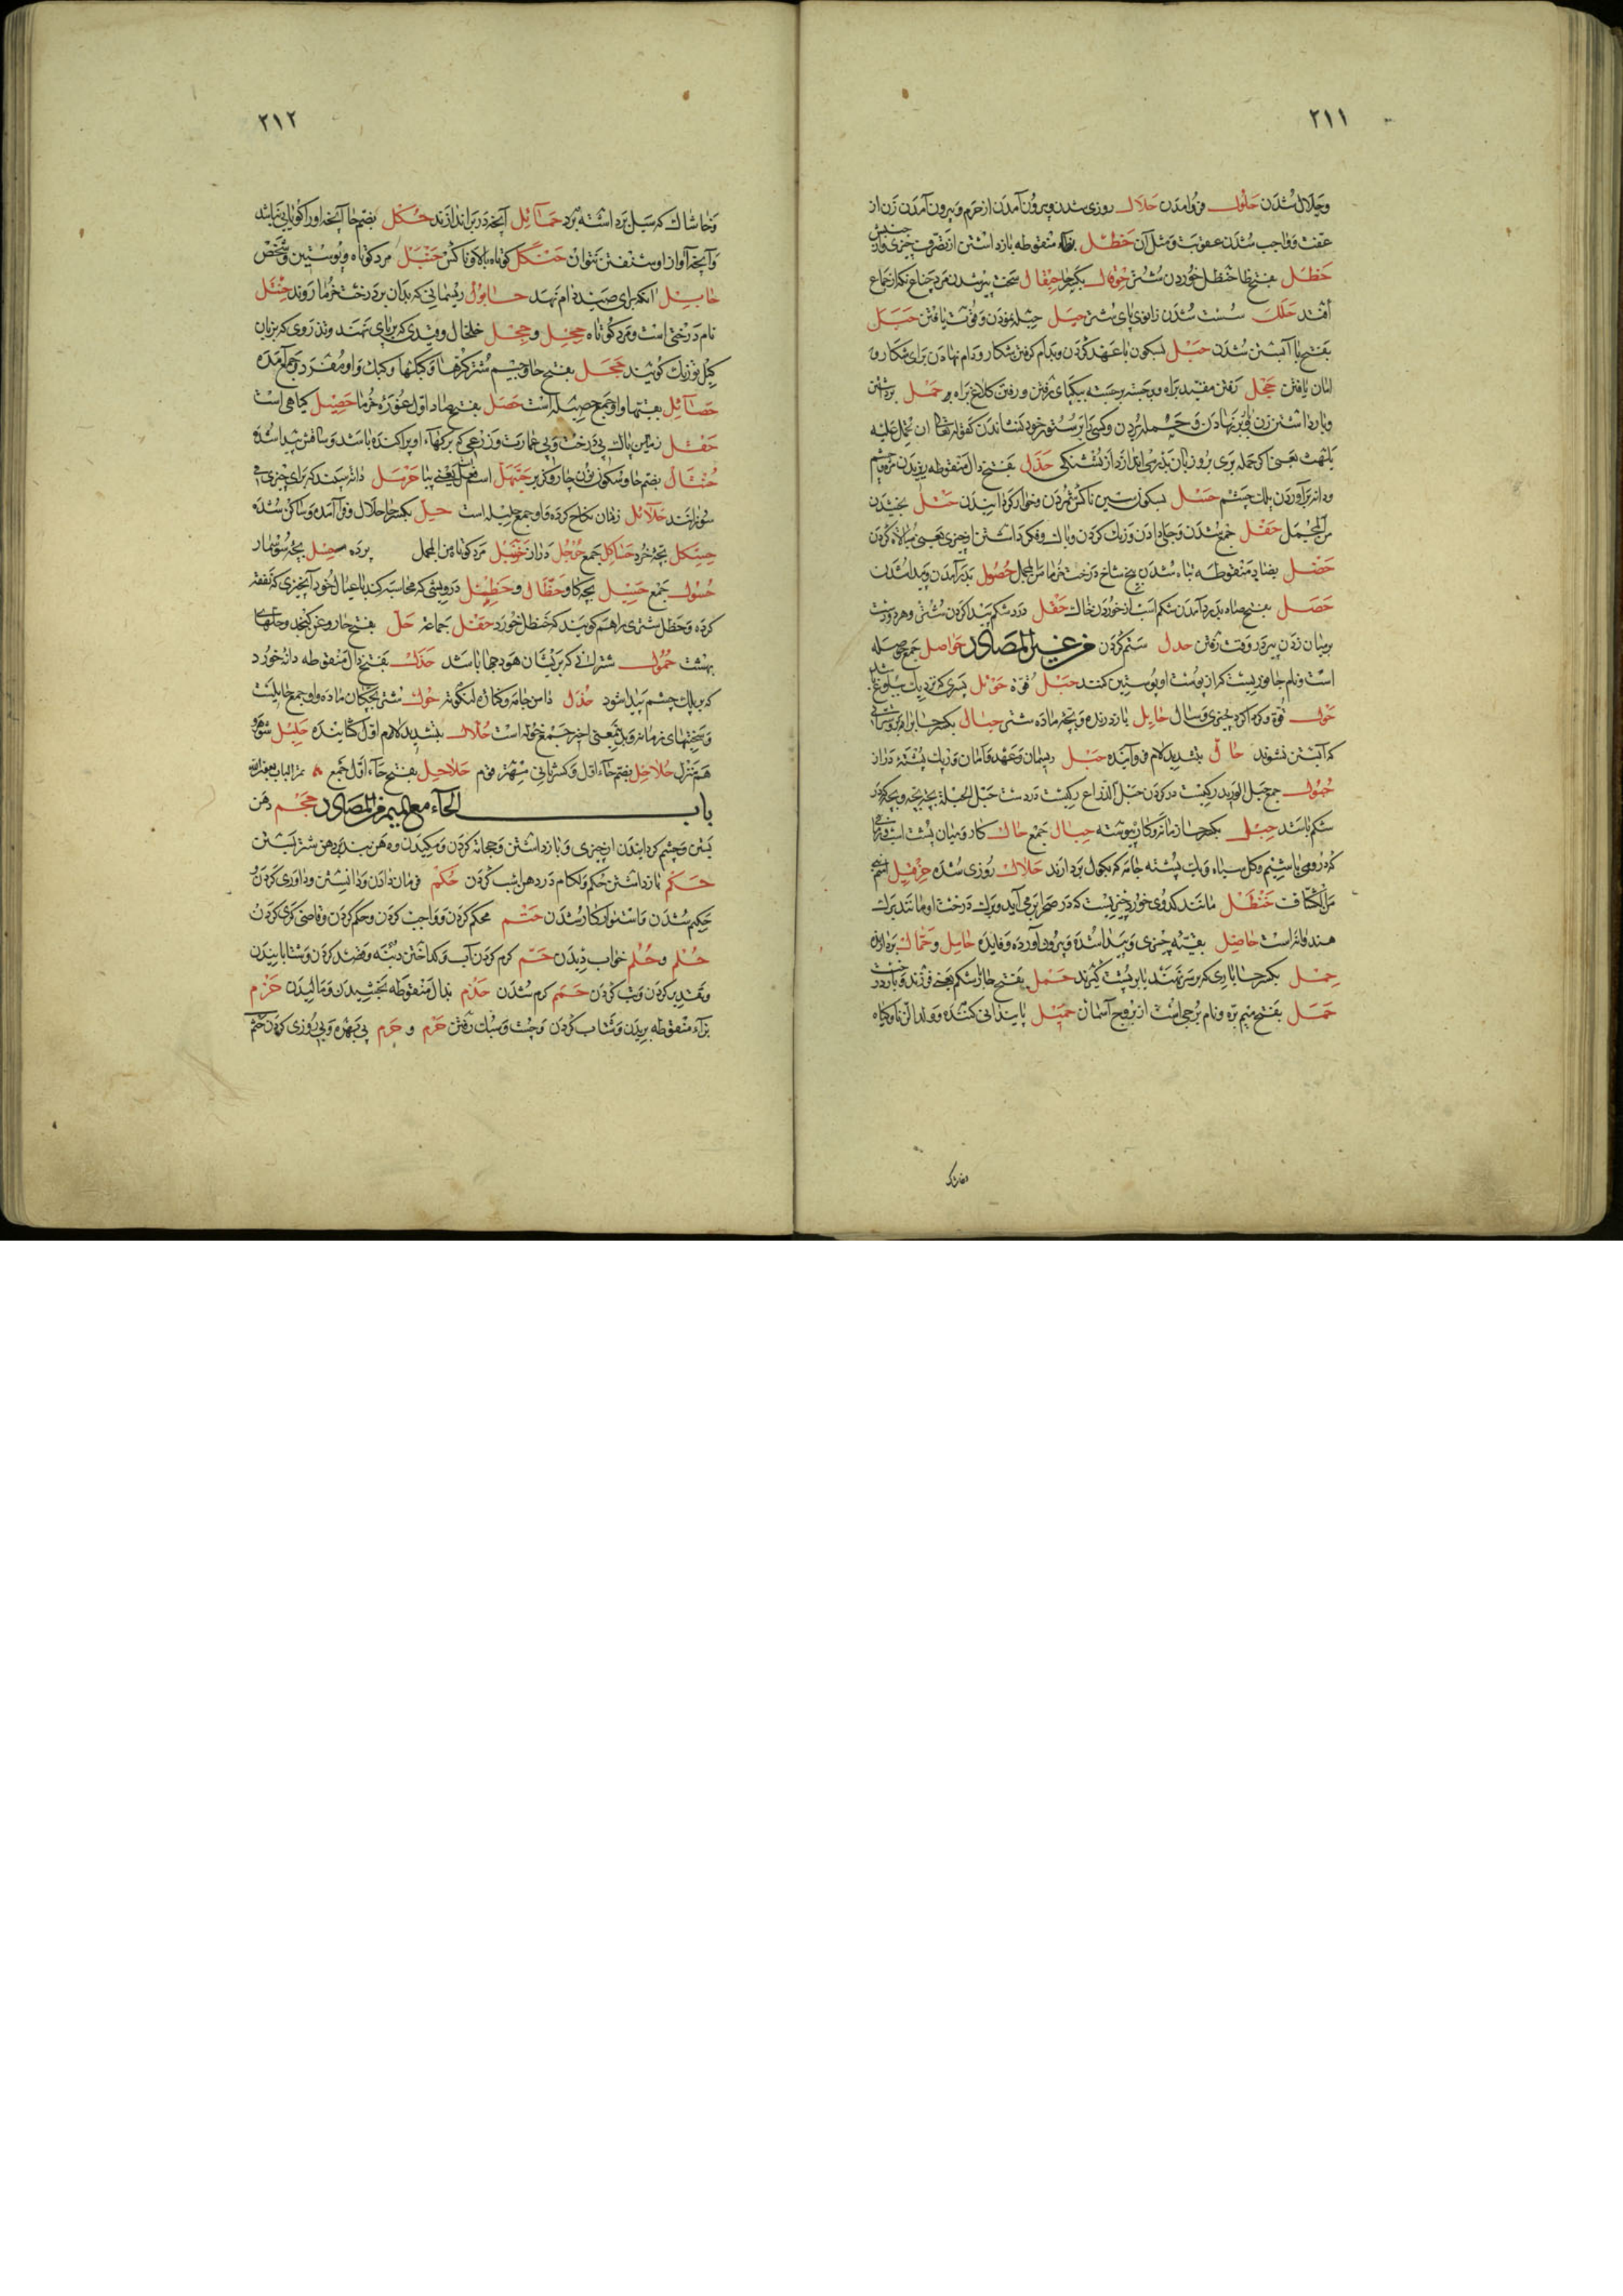 ٢١١
وحلال شدن حلول فرود آمدن حلال روزی شدن و بیرون آمدن از حرم و بیرون آمدن زن از
عدت و واجب شدن عقوبت و مثل آن حظل منقوطه بازداشتن از تصرف چیزی و از جنبش
حظل بفتح ظا حنظل خوردن شتر حوقال بکسر حا حیقال سخت پیر شدن مرد چنانچه از جماع
افتد حلل سست شدن زانوی پای شتر حیل حیله نمودن و قوت یافتن حبل
بفتح با آبستن شدن حبل بسکون با عهد کردن و بدام گرفتن شکار و دام نهادن برای شکار و
امان یافتن حجل رفتن مقید براه و برجسته برجسته بیکپای رفتن و رفتن کلاغ براه حمل برداشتن
و بار داشتن زن و بر نهادن و حمله بردن و کسی را بر ستور خود نشاندن کقوله تعالی ان تحمل علیه
یلهث یعنی اگر حمله بری برو زبان بیرون اندازد از تشنگی حذل بفتح ذال منقوطه ریزیدن مژه چشم
ودانه برآوردن پلک چشم حسل بسکون سین ناکس شمردن و خوار گردانیدن بخشیدن
من المجمل حفل جمع شدن و جلی دادن و زینت کردن و باک و فکر داشتن از چیزی یعنی مبالاة کردن
حضل بضاد منقوطه تباه شدن بیخ شاخ درخت خرما من المجمل حصول بدر آمدن و پیدا شدن
حصل بفتح صاد بدرد آمدن شکم اسب از خوردن خاک حقل درد شکم پیدا کردن شتر و هر دو دست
بر میان زدن پیر در وقت رفتن حدل ستم کردن من غیر المصادر حواصل جمع حوصله
است و نام جانوریست که از پوست او پوستین کنند حبل قوة حوقل پسری که نزدیک ببلوغ باشد
حول قوة و گرداگرد چیزی و سال حایل بازدارنده و بچه ماده شتر حبال بکسر حا
که آبستن نشوند حال بتشدید لام فرود آینده حبل ریسمان و عهد و امان و ریگ پشته دراز
حبول جمع حبل الورید رگیست در گردن حبل الذراع رگیست در دست حبل الحبلة بچه بچه و بچه که در
شکم باشد حبل بکسر حا حبال جمع حال کار و میان پشت اسب
که در روی باشد و گل سیاه و یک پشته جامه که بکول بردارند حلال روزی شده حزقیل اسم
من الکشاف حنظل مانند کدوی خورد چیزیست که در صحرا بر می آید و برگ درخت او مانند برگ
هندوانه است حاصل بقیه چیزی و پیدا شده و بیرون آورده و فایده حامل و حمال بردارنده
حمل بکسر حا باری که بر سر نهند یا بر پشت گیرند حمل بفتح حا بار شکم یعنی فرزند و بار درخت
حمل بفتح میم بره و نام برجی است از بروج آسمان حمیل پایندانی کننده و ولد الزنا و گیاه
٢١٢
و خاشاک که سیل برداشته برد حمائل آنچه در بر اندازند حکل بضم حا آنچه او را گویایی نباشد
و آنچه آواز او شنفتن نتوان حنکل کوتاه بالا و ناکس حنبل مرد کوتاه و پوستین و شخص
حابل آنکه برای صید دام نهد حابول ریسمانی که بدان بر درخت خرما روند حثل
نام درختی است و مرد کوتاه حجل و حجل خلخال و قیدی که بر پای نهند و تذروی که بزبان
بفتح حا و جیم شتر کرها و کبکها و کبک واو مفرد و جمع آمده
حصائل بقیتها و او جمع حصیله است حصل بفتح صاد اول غوره خرما حصیل گیاهی است
حقل زمین پاک بی درخت و بی عمارت و زرعی که برگهاء او پراکنده باشد و ساقش پیدا شده
حنتال بضم حا و سکون نون چاره و گزیر حیهل اسم فعل یعنی بیا حرمل دانه سپند که برای چیزی
سوزانند حلائل زنان نکاح کرده و او جمع حلیله است حل بکسر حا حلال و فرود آمده و ساکن شده
حسکل بچه خرد حساکل جمع حنجل دراز حوصل مرد کوتاه من المجمل پرده حسل بچه سوسمار
حسول جمع حسیل بچه گاو حظال و حظل درویشی که محاسبه کند با عیال خود آنچیزی که نفقه
کرده و حظل شتری را هم گویند که حنظل خورد حفل جماعة حل بفتح حا روغن کنجد و حلهای
بهشت حمول شترانی که بریشان هودجها باشد حذل بفتح ذال منقوطه دانه خورد
که بر پلک چشم پیدا شود حذل دامن جامه و کناره حول شتر بچکان ماده و او جمع حایلست
و سختیهای زمانه حلال بتشدید لام اول گشاینده حلیل شوهر و
هم منزل حلاحل بضم حاء اول و کسر ثانی مهتر قوم حلاحل بفتح حاء اول جمع تم الباب بعون الله
باب الحاء مع المیم من المصادر حجم دهن
بستن و چشم گردانیدن از چیزی و بازداشتن و حجامة کردن و مکیدن و دهن بند بر دهن شتر بستن
حکم بازداشتن حکم و لگام در دهن اسب کردن حکم فرمان دادن و دانستن و داوری کردن و
حکیم شدن و استوار کار شدن حتم محکم کردن و واجب کردن و حکم کردن و قاضی گری کردن
حلم و حلم خواب دیدن حم گرم کردن آب و گداختن دنبه و قصد کردن و شتابانیدن
و تقدیر کردن و تب کردن حمم گرم شدن حذم بذال منقوطه بخشیدن و مالیدن حزم
بزاء منقوطه بریدن و شتاب کردن و چست و سبک رفتن حرم و حرم بی بهره و بی روزی کردن حثم